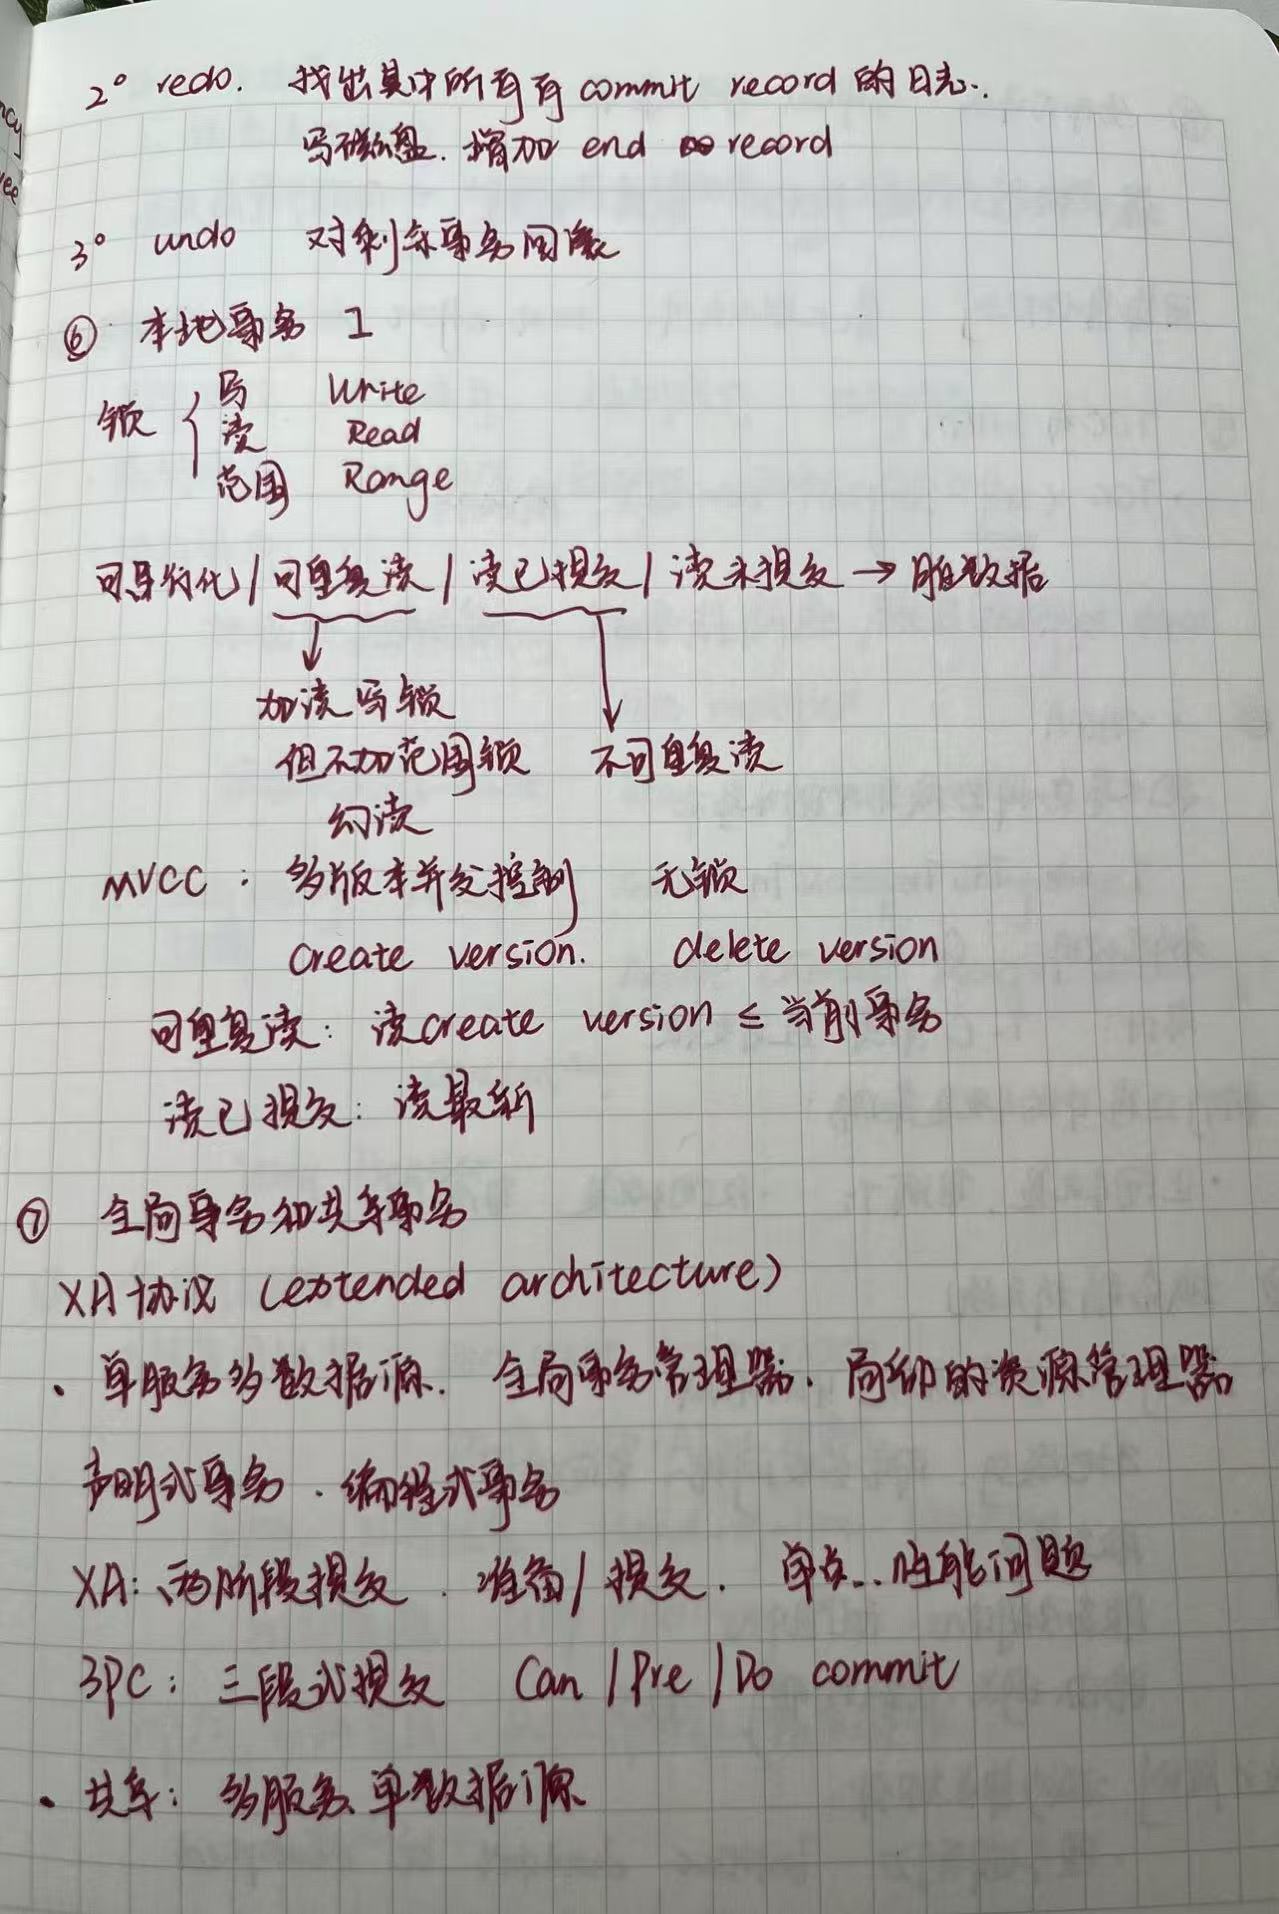 2° redo. 找出其中所有有 commit record 的日志..
写磁盘. 增加 end record
3° undo 对剩余事务回滚
⑥ 本地事务 I
锁 { 写 Write
读 Read
范围 Range
可串行化 / 可重复读 / 读已提交 / 读未提交 → 脏数据
加读写锁
但不加范围锁 不可重复读
幻读
MVCC : 多版本并发控制 无锁
create version. delete version
可重复读: 读create version ≤ 当前事务
读已提交: 读最新
⑦ 全局事务和共享事务
XA协议 (extended architecture)
· 单服务多数据源. 全局事务管理器. 局部的资源管理器
声明式事务 . 编程式事务
XA: 两阶段提交 . 准备/提交. 单点.. 性能问题
3PC: 三段式提交 Can / Pre / Do commit
· 共享: 多服务、单数据源